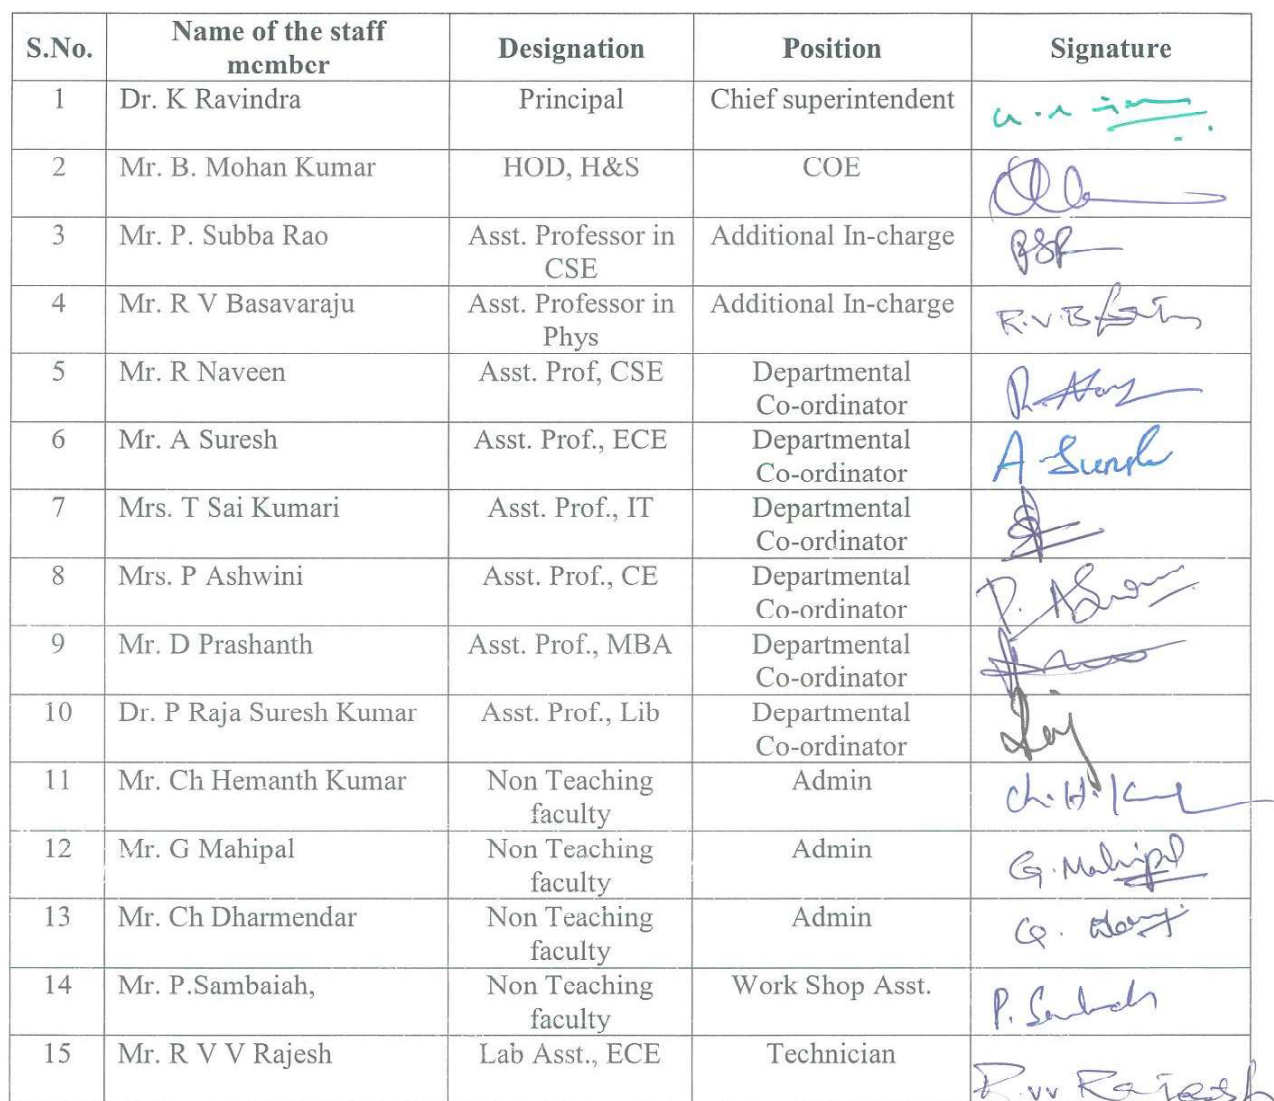 S.No. Name of the staff member Designation Position Signature
1 Dr. K Ravindra Principal Chief superintendent
2 Mr. B. Mohan Kumar HOD, H&S COE
3 Mr. P. Subba Rao Asst. Professor in Additional In-charge PSR
CSE
4 Mr. R V Basavaraju Asst. Professor in Additional In-charge R.V.B
Phys
5 Mr. R Naveen Asst. Prof, CSE Departmental
Co-ordinator
6 Mr. A Suresh Asst. Prof., ECE Departmental A Suresh
Co-ordinator
7 Mrs. T Sai Kumari Asst. Prof., IT Departmental
Co-ordinator
8 Mrs. P Ashwini Asst. Prof., CE Departmental
Co-ordinator
9 Mr. D Prashanth Asst. Prof., MBA Departmental
Co-ordinator
10 Dr. P Raja Suresh Kumar Asst. Prof., Lib Departmental Raj
Co-ordinator
11 Mr. Ch Hemanth Kumar Non Teaching Admin Ch.H.K
faculty
12 Mr. G Mahipal Non Teaching Admin G.Mahipal
faculty
13 Mr. Ch Dharmendar Non Teaching Admin
faculty
14 Mr. P.Sambaiah, Non Teaching Work Shop Asst.
faculty
15 Mr. R V V Rajesh Lab Asst., ECE Technician R.vv Rajesh